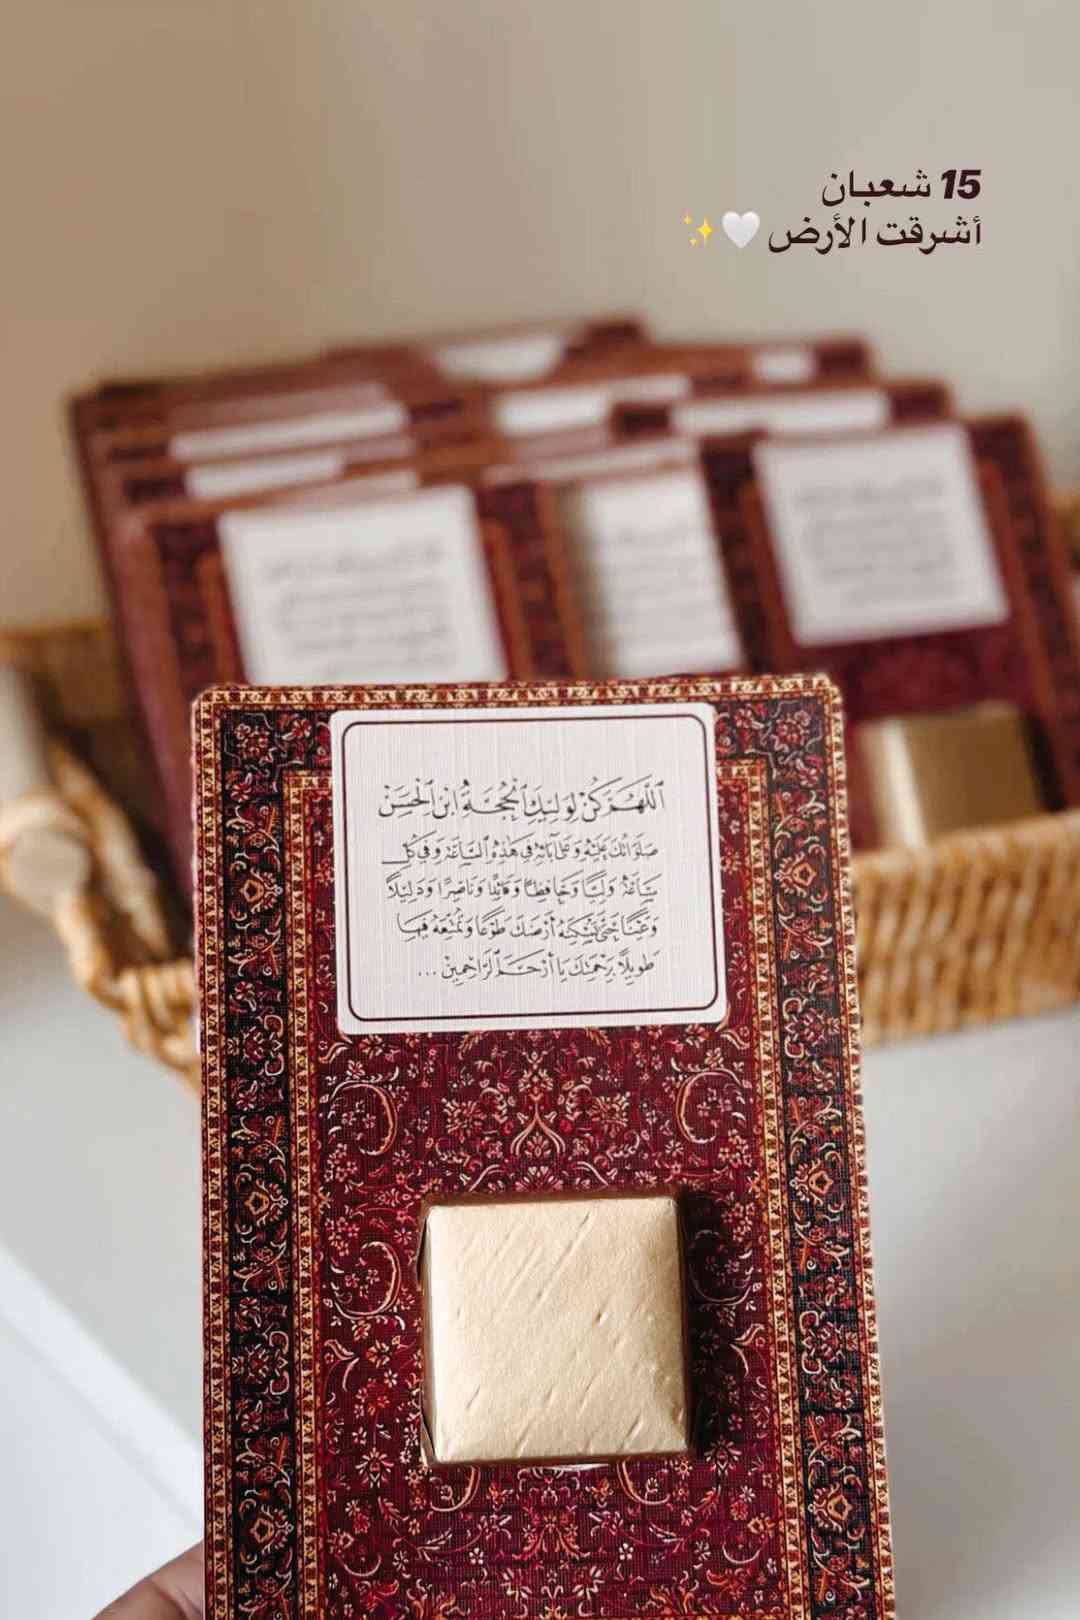 15 شعبان
أشرقت الأرض 🤍✨
اَللّٰهُمَّ كُنْ لِوَلِيِّكَ الْحُجَّةِ ابْنِ الْحَسَنِ
صَلَوَاتُكَ عَلَيْهِ وَعَلَى آبَائِهِ فِي هَذِهِ السَّاعَةِ وَفِي كُلِّ
سَاعَةٍ وَلِيًّا وَحَافِظًا وَقَائِدًا وَنَاصِرًا وَدَلِيلًا
وَعَيْنًا حَتَّى تُسْكِنَهُ أَرْضَكَ طَوْعًا وَتُمَتِّعَهُ فِيهَا
طَوِيلًا بِرَحْمَتِكَ يَا أَرْحَمَ الرَّاحِمِينَ ...